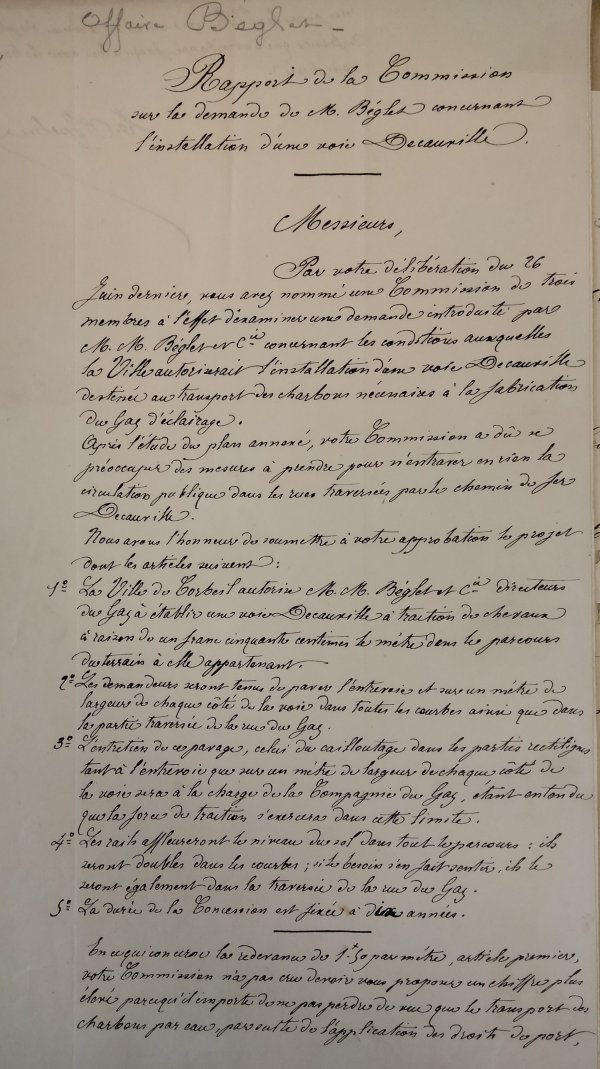 affaire Béglet -
Rapport de la Commission
sur la demande de M. Béglet concernant
l'installation d'une voie Decauville.
Messieurs,
Par votre délibération du 26
Juin dernier, vous avez nommé une Commission de trois
membres à l'effet d'examiner une demande introduite par
M. M. Béglet et Cie concernant les conditions auxquelles
la Ville autoriserait l'installation d'une voie Decauville
destinée au transport des charbons nécessaires à la fabrication
du Gaz d'éclairage.
Après l'étude du plan annexé, votre Commission a dû se
préoccuper des mesures à prendre pour n'entraver en rien la
circulation publique dans les rues traversées par le chemin de fer
Decauville.
Nous avons l'honneur de soumettre à votre approbation le projet
dont les articles suivent :
1º La Ville de Corbeil autorise M. M. Béglet et Cie directeurs
du Gaz à établir une voie Decauville à traction de chevaux
à raison de un franc cinquante centimes le mètre dans le parcours
du terrain à elle appartenant.
2º Les demandeurs seront tenus de paver l'entrevoie et sur un mètre de
largeur de chaque côté de la voie dans toutes les courbes ainsi que dans
la partie traversée de la rue du Gaz.
3º L'entretien de ce pavage, celui du cailloutage dans les parties rectilignes
tant à l'entrevoie que sur un mètre de largeur de chaque côté de
la voie sera à la charge de la Compagnie du Gaz, étant entendu
que la force de traction s'exercera dans cette limite.
4º Les rails affleureront le niveau du sol dans tout le parcours : ils
seront doubles dans les courbes ; si le besoin s'en fait sentir, ils le
seront également dans la traversée de la rue du Gaz.
5º La durée de la Concession est fixée à dix années.
En ce qui concerne la redevance de 1f 50 par mètre, article premier,
votre Commission n'a pas cru devoir vous proposer un chiffre plus
élevé parce qu'il importe de ne pas perdre de vue que le transport des
charbons par eau, par suite de l'application des droits de port,